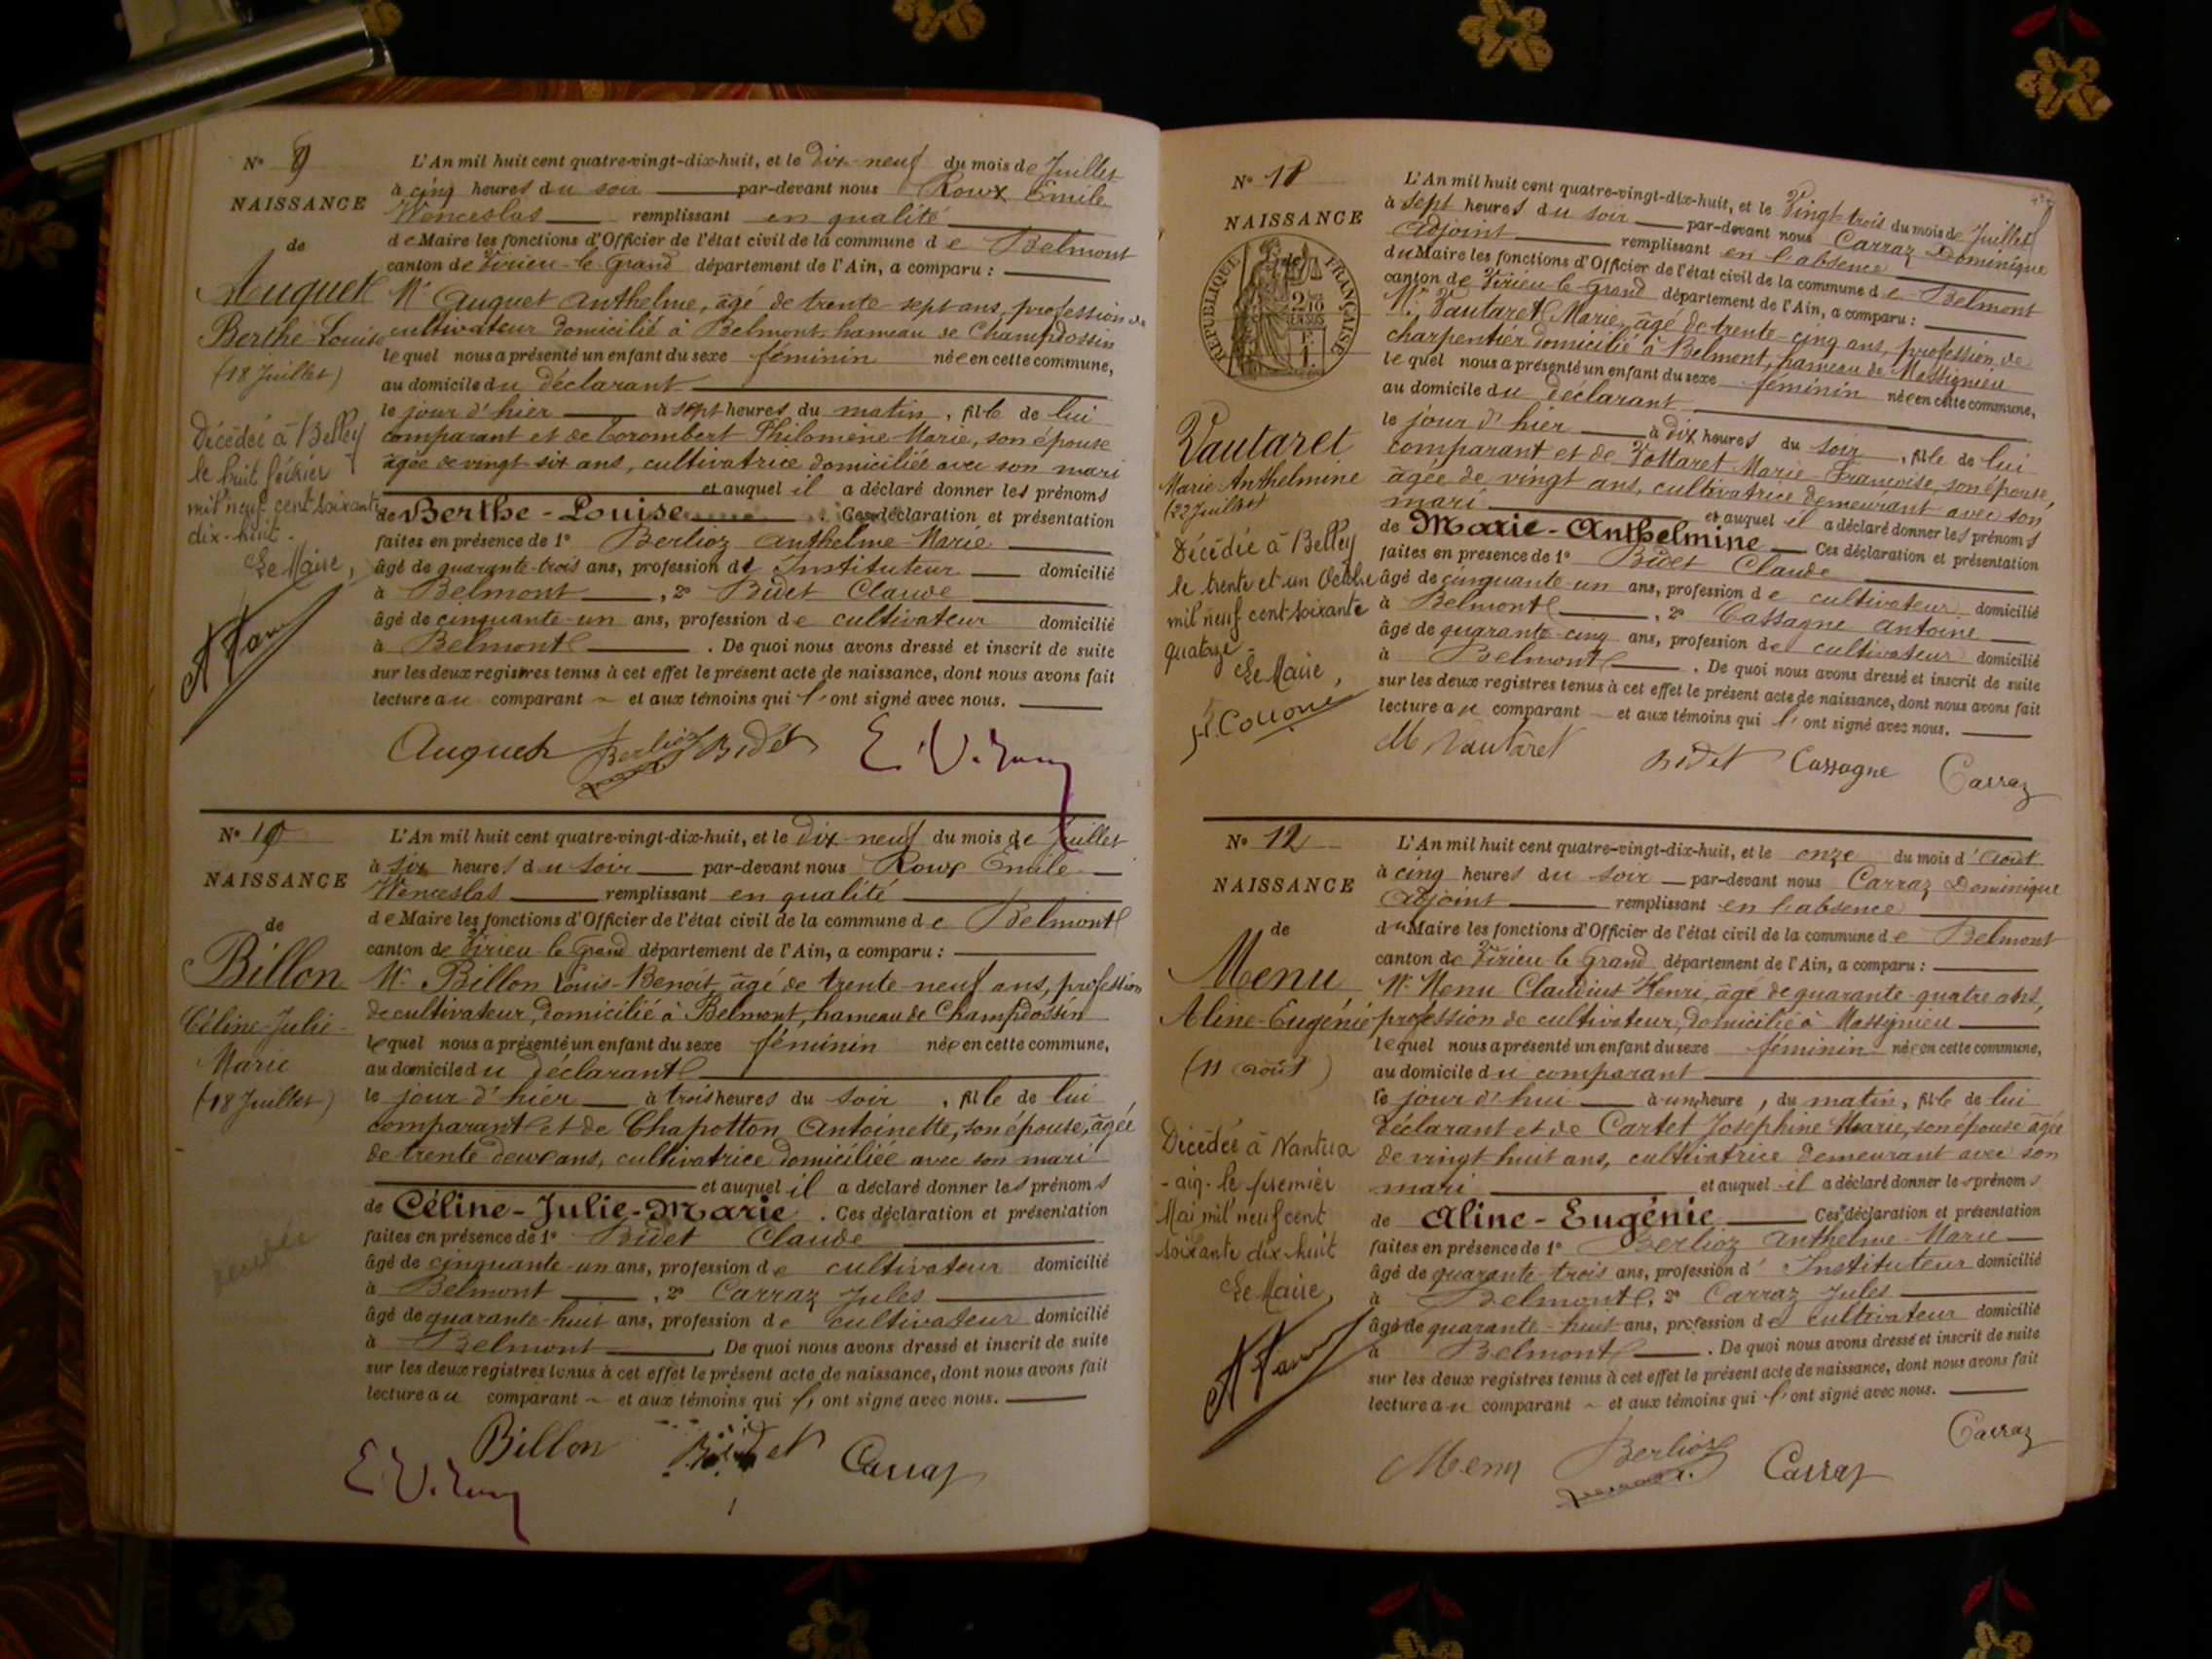 N° 9
NAISSANCE
de
Auguet
Berthe-Louise
(18 Juillet)
Décédée à Belley
le huit février
mil neuf cent soixante
dix-huit.
Le Maire,
L'An mil huit cent quatre-vingt-dix-huit, et le Dix-neuf du mois de Juillet
à cinq heures du soir par-devant nous Roux Emile
Wenceslas remplissant en qualité
de Maire les fonctions d'Officier de l'état civil de la commune de Belmont
canton de Virieu-le-Grand département de l'Ain, a comparu :
Mr Auguet Anthelme, âgé de trente-sept ans, profession de
cultivateur domicilié à Belmont, hameau de Champdossin
lequel nous a présenté un enfant du sexe féminin née en cette commune,
au domicile du déclarant
le jour d'hier à sept heures du matin, fille de lui
comparant et de Corombert Philomène-Marie, son épouse
âgée de vingt-six ans, cultivatrice domiciliée avec son mari
et auquel il a déclaré donner les prénoms
de Berthe-Louise. Ces déclaration et présentation
faites en présence de 1° Berlioz Anthelme-Marie
âgé de quarante-trois ans, profession d' Instituteur domicilié
à Belmont, 2° Bidet Claude
âgé de cinquante-un ans, profession de cultivateur domicilié
à Belmont. De quoi nous avons dressé et inscrit de suite
sur les deux registres tenus à cet effet le présent acte de naissance, dont nous avons fait
lecture au comparant et aux témoins qui l'ont signé avec nous.
Auguet Berlioz Bidet
N° 10
NAISSANCE
de
Billon
Céline-Julie-
Marie
(18 Juillet)
L'An mil huit cent quatre-vingt-dix-huit, et le Dix-neuf du mois de Juillet
à six heures du soir par-devant nous Roux Emile
Wenceslas remplissant en qualité
de Maire les fonctions d'Officier de l'état civil de la commune de Belmont
canton de Virieu-le-Grand département de l'Ain, a comparu :
Mr Billon Louis-Benoît, âgé de trente-neuf ans, profession
de cultivateur, domicilié à Belmont, hameau de Champdossin
lequel nous a présenté un enfant du sexe féminin née en cette commune,
au domicile du déclarant
le jour d'hier à trois heures du soir, fille de lui
comparant et de Chapotton Antoinette, son épouse, âgée
de trente deux ans, cultivatrice domiciliée avec son mari
et auquel il a déclaré donner les prénoms
de Céline-Julie-Marie. Ces déclaration et présentation
faites en présence de 1° Bidet Claude
âgé de cinquante-un ans, profession de cultivateur domicilié
à Belmont, 2° Carraz Jules
âgé de quarante-huit ans, profession de cultivateur domicilié
à Belmont, De quoi nous avons dressé et inscrit de suite
sur les deux registres tenus à cet effet le présent acte de naissance, dont nous avons fait
lecture au comparant et aux témoins qui l'ont signé avec nous.
Billon Bidet Carraz
N° 11
NAISSANCE
RÉPUBLIQUE FRANÇAISE
Vautaret
Marie Anthelmine
(22 Juillet)
Décédée à Belley
le trente et un Octobre
mil neuf cent soixante
quatorze
Le Maire,
L'An mil huit cent quatre-vingt-dix-huit, et le Vingt-trois du mois de Juillet
à sept heures du soir par-devant nous Carraz Dominique
Adjoint remplissant en l'absence
du Maire les fonctions d'Officier de l'état civil de la commune de Belmont
canton de Virieu-le-Grand département de l'Ain, a comparu :
Mr Vautaret Marie, âgé de trente-cinq ans, profession de
charpentier domicilié à Belmont, hameau de Massignieu
lequel nous a présenté un enfant du sexe féminin née en cette commune,
au domicile du déclarant
le jour d'hier à dix heures du soir, fille de lui
comparant et de Vottaret Marie Françoise, son épouse,
âgée de vingt ans, cultivatrice demeurant avec son
mari et auquel il a déclaré donner les prénoms
de Marie-Anthelmine Ces déclaration et présentation
faites en présence de 1° Bidet Claude
âgé de cinquante-un ans, profession de cultivateur domicilié
à Belmont, 2° Cassagne Antoine
âgé de quarante-cinq ans, profession de cultivateur domicilié
à Belmont. De quoi nous avons dressé et inscrit de suite
sur les deux registres tenus à cet effet le présent acte de naissance, dont nous avons fait
lecture au comparant et aux témoins qui l'ont signé avec nous.
M Vautaret Bidet Cassagne Carraz
N° 12
NAISSANCE
de
Menu
Aline-Eugénie
(11 août)
Décédée à Nantua
-ain- le premier
Mai mil neuf cent
soixante dix-huit
Le Maire,
L'An mil huit cent quatre-vingt-dix-huit, et le onze du mois d'Août
à cinq heures du soir par-devant nous Carraz Dominique
Adjoint remplissant en l'absence
du Maire les fonctions d'Officier de l'état civil de la commune de Belmont
canton de Virieu-le-Grand département de l'Ain, a comparu :
Mr Menu Claudius Henri, âgé de quarante-quatre ans,
profession de cultivateur, domicilié à Massignieu
lequel nous a présenté un enfant du sexe féminin née en cette commune,
au domicile du comparant
le jour d'hui à une heure, du matin, fille de lui
déclarant et de Cartet Joséphine Marie, son épouse âgée
de vingt huit ans, cultivatrice demeurant avec son
mari et auquel il a déclaré donner les prénoms
de Aline-Eugénie Ces déclaration et présentation
faites en présence de 1° Berlioz Anthelme-Marie
âgé de quarante-trois ans, profession d' Instituteur domicilié
à Belmont, 2° Carraz Jules
âgé de quarante-huit ans, profession de cultivateur domicilié
à Belmont. De quoi nous avons dressé et inscrit de suite
sur les deux registres tenus à cet effet le présent acte de naissance, dont nous avons fait
lecture au comparant et aux témoins qui l'ont signé avec nous.
Carraz
Menu Berlioz Carraz